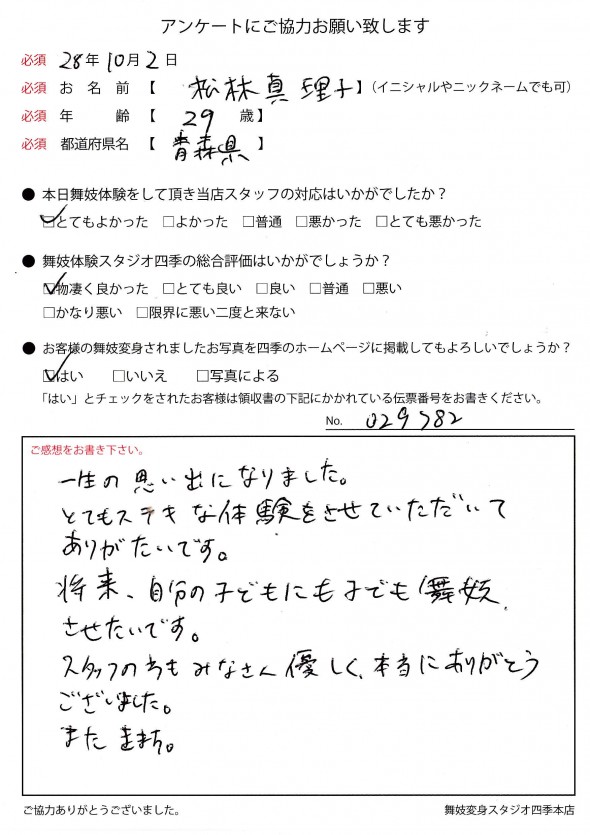 アンケートにご協力お願い致します
必須 28年10月2日
必須 お名前 【 松林真理子 】(イニシャルやニックネームでも可)
必須 年齢 【 29 歳】
必須 都道府県名 【 青森県 】
● 本日舞妓体験をして頂き当店スタッフの対応はいかがでしたか?
☑とてもよかった □よかった □普通 □悪かった □とても悪かった
● 舞妓体験スタジオ四季の総合評価はいかがでしょうか?
☑物凄く良かった □とても良い □良い □普通 □悪い
□かなり悪い □限界に悪い二度と来ない
● お客様の舞妓変身されましたお写真を四季のホームページに掲載してもよろしいでしょうか?
☑はい □いいえ □写真による
「はい」とチェックをされたお客様は領収書の下記にかかれている伝票番号をお書きください。
No. 029782
ご感想をお書き下さい。
一生の思い出になりました。
とてもステキな体験をさせていただいて
ありがたいです。
将来、自分の子どもにも子でも舞妓
させたいです。
スタッフの方もみなさん優しく、本当にありがとう
ございました。
また
ご協力ありがとうございました。
舞妓変身スタジオ四季本店